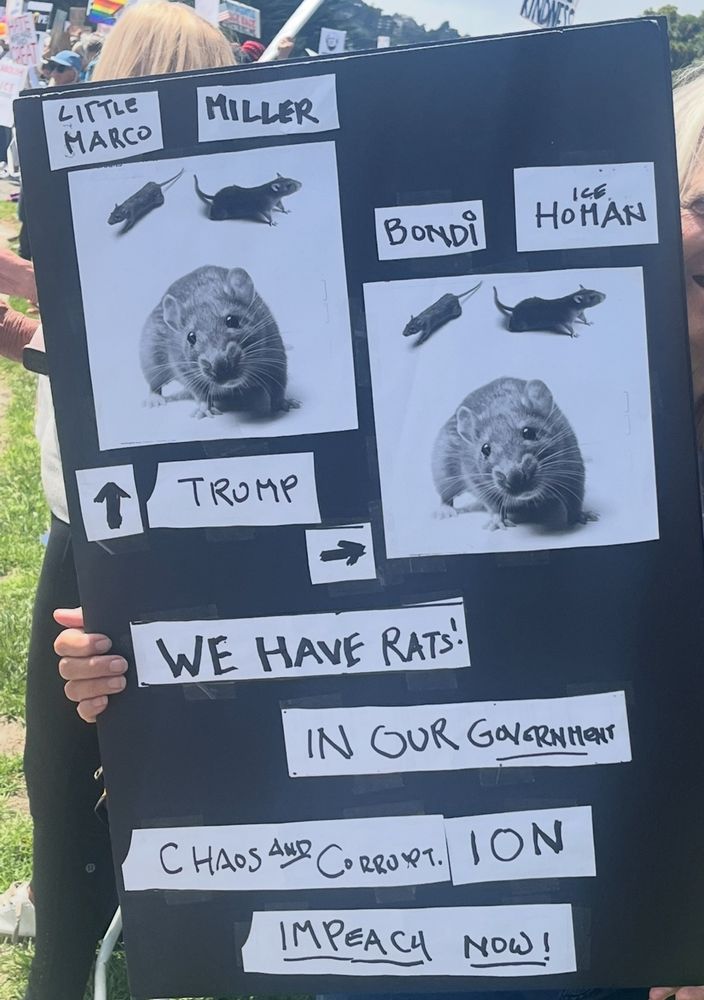 KINDNESS
LITTLE
MARCO
MILLER
BONDi
ICE
HOMAN
TRUMP
WE HAVE RATS!
IN OUR GOVERNMENT
CHAOS AND CORRUPT. ION
IMPEACH NOW!